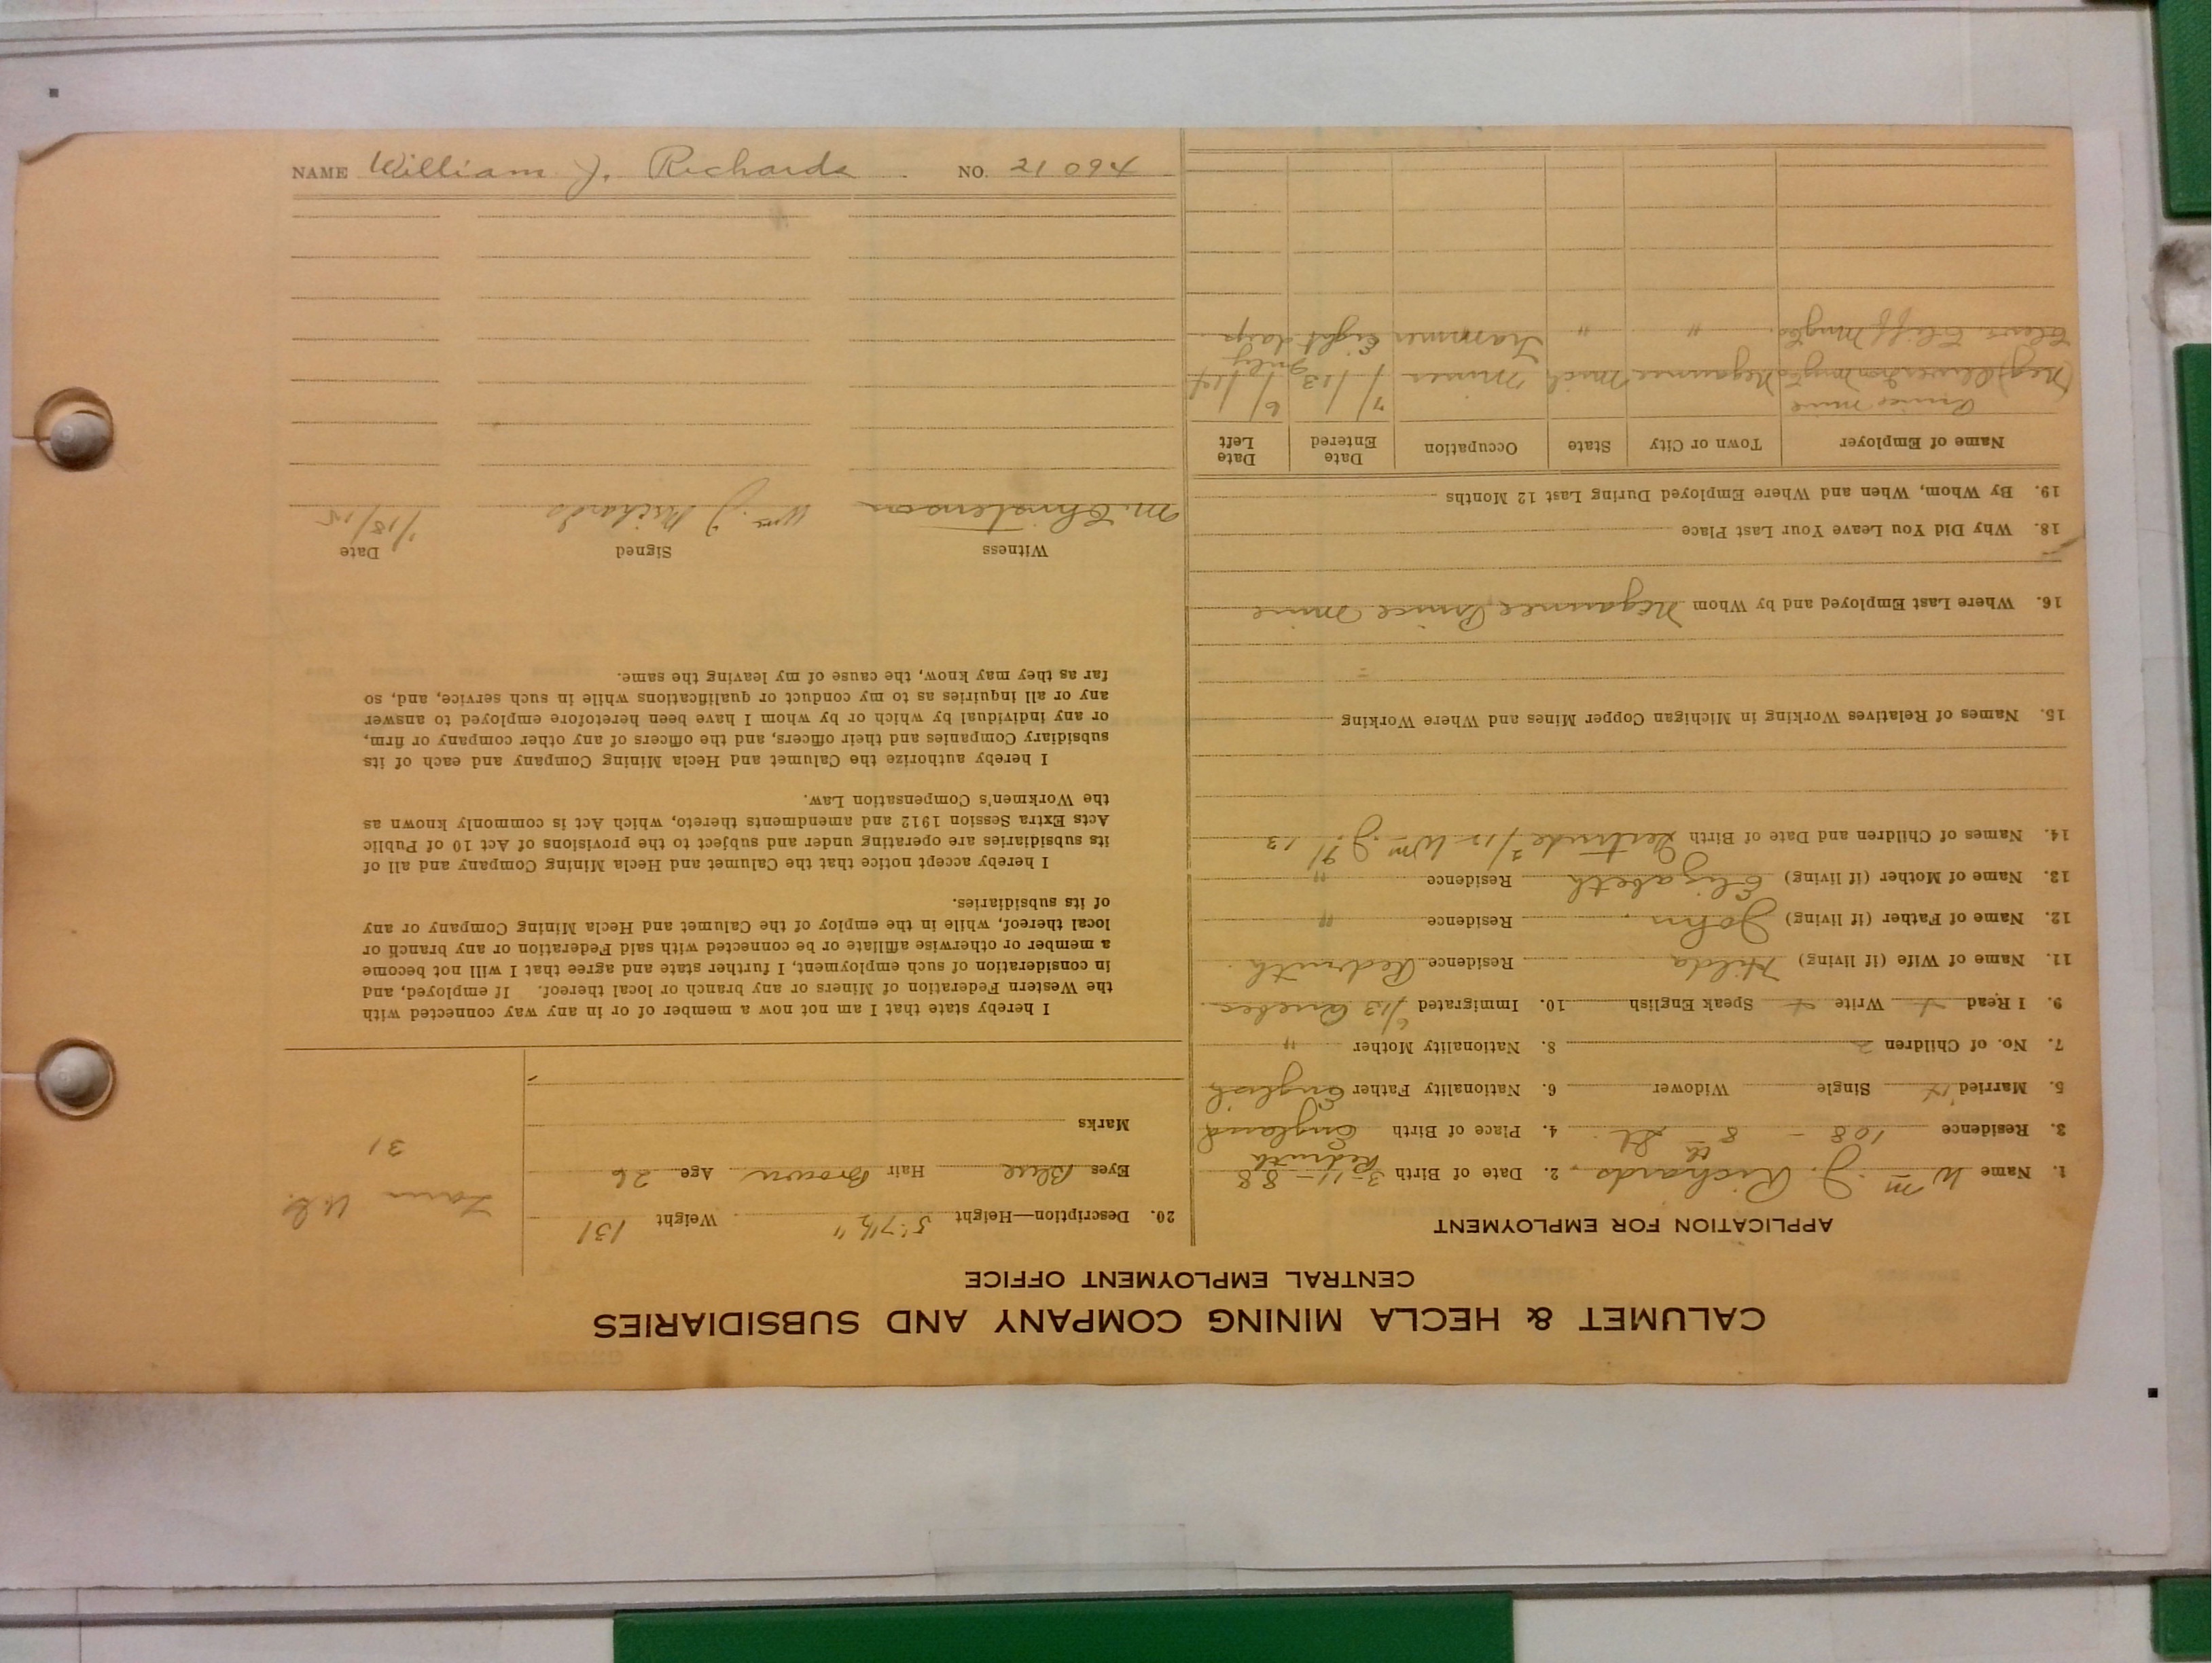 CALUMET & HECLA MINING COMPANY AND SUBSIDIARIES
CENTRAL EMPLOYMENT OFFICE
APPLICATION FOR EMPLOYMENT
1. Name Wm J. Richards. 2. Date of Birth 3-11-88
Redruth
3. Residence 108 - 8th St. 4. Place of Birth England
5. Married + Single Widower 6. Nationality Father English
7. No. of Children 2 8. Nationality Mother "
9. I Read + Write + Speak English 10. Immigrated 6/13 Quebec
11. Name of Wife (if living) Hilda Residence Redruth.
12. Name of Father (if living) John. Residence "
13. Name of Mother (if living) Elizabeth Residence "
14. Names of Children and Date of Birth Gertrude 2/12 Wm. J. 9/13
15. Names of Relatives Working in Michigan Copper Mines and Where Working
16. Where Last Employed and by Whom Negaunee Prince Mine
18. Why Did You Leave Your Last Place
19. By Whom, When and Where Employed During Last 12 Months
Name of Employer Town or City State Occupation Date Entered Date Left
mine
(Neg) Oliver Iron Mng Co Negaunee Mich Miner 7/13 6/14
July
Cleve. Cliff Mng Co. " " Trammer Eight days
20. Description—Height 5'7½" Weight 131
Eyes Blue Hair Brown Age 26
Marks
31
I hereby state that I am not now a member of or in any way connected with
the Western Federation of Miners or any branch or local thereof. If employed, and
in consideration of such employment, I further state and agree that I will not become
a member or otherwise affiliate or be connected with said Federation or any branch or
local thereof, while in the employ of the Calumet and Hecla Mining Company or any
of its subsidiaries.
I hereby accept notice that the Calumet and Hecla Mining Company and all of
its subsidiaries are operating under and subject to the provisions of Act 10 of Public
Acts Extra Session 1912 and amendments thereto, which Act is commonly known as
the Workmen's Compensation Law.
I hereby authorize the Calumet and Hecla Mining Company and each of its
subsidiary Companies and their officers, and the officers of any other company or firm,
or any individual by which or by whom I have been heretofore employed to answer
any or all inquiries as to my conduct or qualifications while in such service, and, so
far as they may know, the cause of my leaving the same.
Witness Signed Date
M. Christenson Wm. J Richards 1/18/15
NAME William J. Richards. NO. 21094